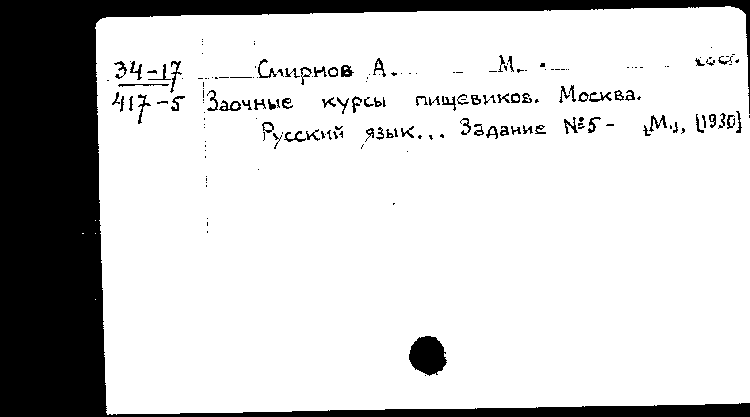 34-17 Смирнов А. М. сост.
417-5 Заочные курсы пищевиков. Москва.
Русский язык... Задание №5 - [М.], [1930]